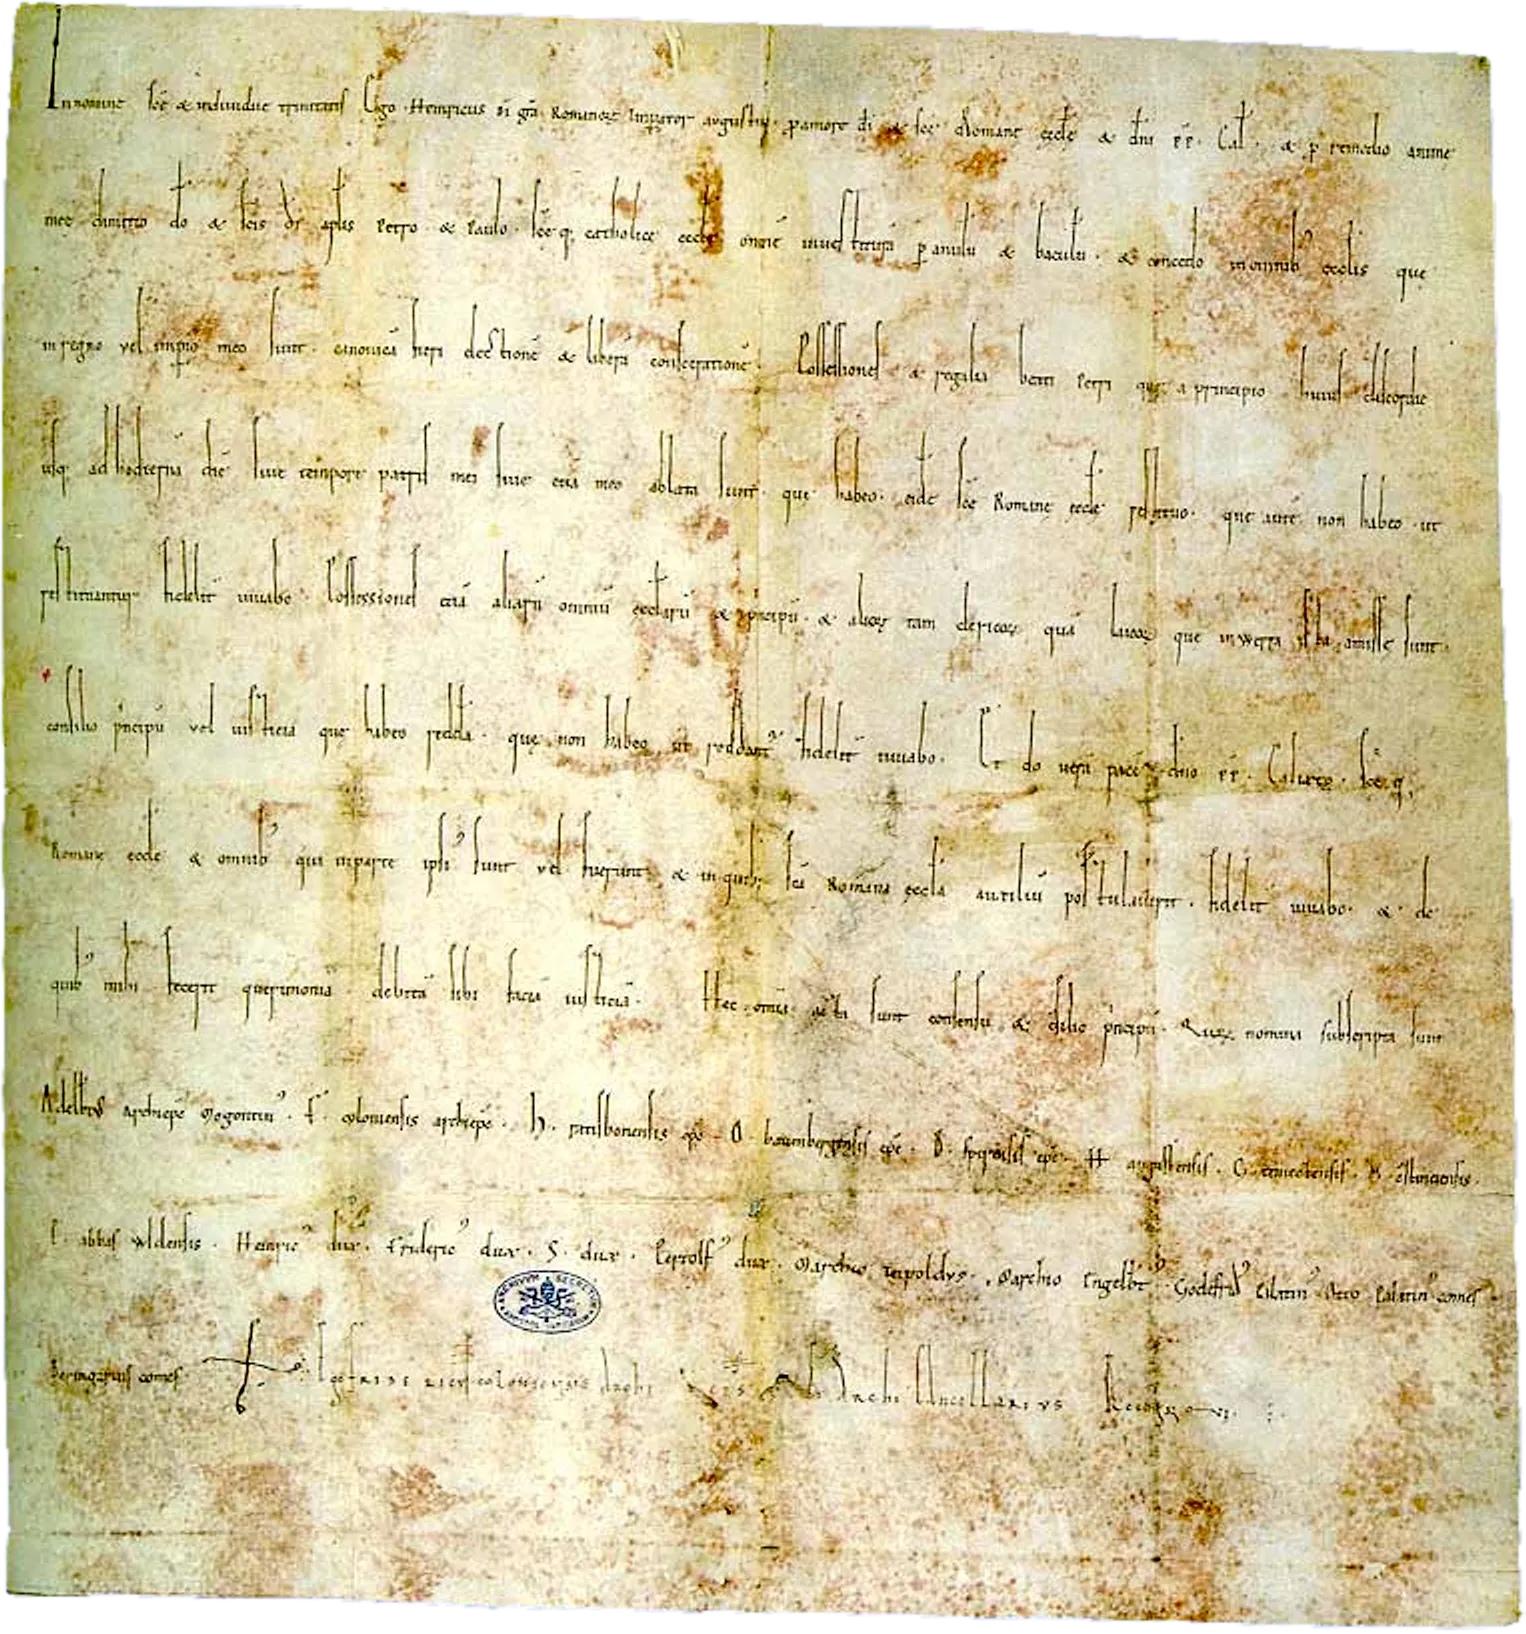 In nomine scē & individuę trinitatis Ego Heinricus dī grā Romanorꝝ Imperator augustus p amore dī & scę Romanę ęcclę & dn̄i pp. Cal. & p remedio animę
meę dimitto dō & scīs dī aplīs Petro & Paulo scęq; catholicę ęcclę omnē investiturā p anulū & baculū & concedo in omnib; ęcclīs quę
in regno vel impīo meo sunt canonicā fieri electionē & liberā consecrationē. Possessiones & regalia beati Petri quę a principio huius discordię
usq; ad hodiernā diē sive tempore patris mei sive etiā meo ablata sunt quę habeo eidē scę Romanę ęcclę restituo. quę autē non habeo ut
restituantur fidelit̄ iuvabo. Possessiones etiā aliarū omniū ęcclarū & pncipū & aliorꝝ tam clericorꝝ quā laicorꝝ quę in werra ista amissę sunt
consilio pncipū vel iusticia quę habeo reddā. quę non habeo ut reddant̄ fidelit̄ iuvabo. Et do verā pacē dn̄o pp. Calixto scęq;
Romanę ęcclę & omnib; qui in parte ipsi; sunt vel fuerunt & in quib; scā Romana ęccla auxiliū postulaverit fidelit̄ iuvabo. & de
quib; mihi fecerit querimoniā debitā sibi faciā iusticiā. Hęc omīa acta sunt consensu & cōsilio pncipū. Quorꝝ nomina subscripta sunt
Adelbt̄ archiepc̄ Mogontin;. F. coloniensis archiepc̄. H. ratisbonensis epc̄. O. bauenbergensis epc̄. B. spirensis epc̄. H. augustensis. G. traiectensis. O. c̄stanciensis.
E. abbas wldensis. Heinric; dux. Frideric; dux. S. dux. Pertolf; dux. Marchio teipoldvs. Marchio Engelbt̄. Godeffrid; Palatin; Otto Palatin; comes
Beringarius comes
Fridericus coloniensis archiepcs & Archicancellarivs Recognovi
ARCHIVVM SECRETVM